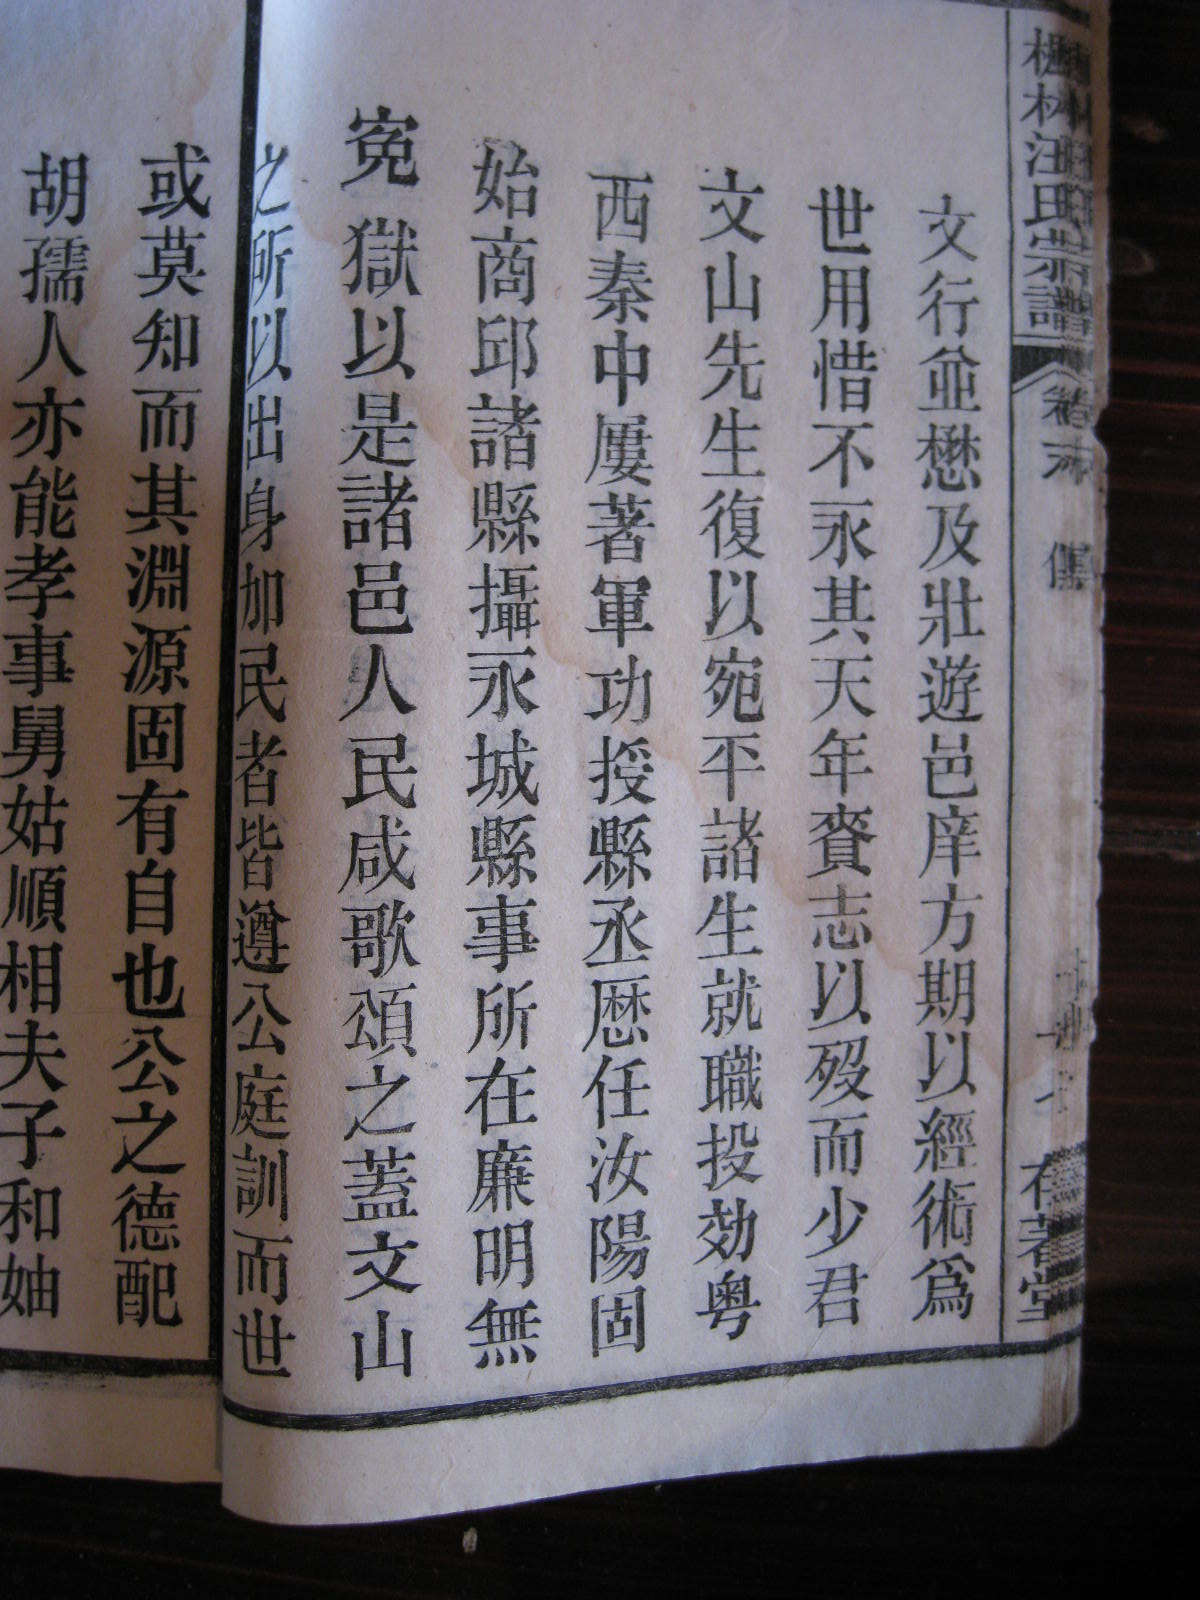 汪氏宗譜 卷末 傳 存著堂
文行並懋及壯遊邑庠方期以經術爲
世用惜不永其天年賫志以歿而少君
文山先生復以宛平諸生就職投効粤
西秦中屢著軍功授縣丞歷任汝陽固
始商邱諸縣攝永城縣事所在廉明無
寃獄以是諸邑人民咸歌頌之蓋文山
之所以出身加民者皆遵公庭訓而世
或莫知而其淵源固有自也公之德配
胡孺人亦能孝事舅姑順相夫子和妯